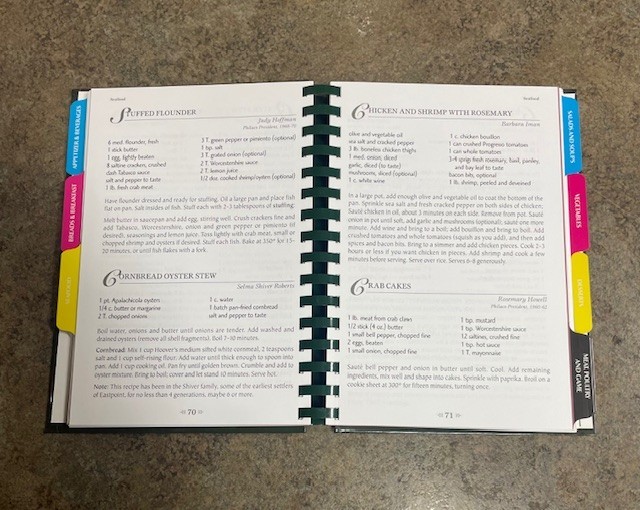 APPETIZER & BEVERAGES
BREADS & BREAKFAST
Seafood
STUFFED FLOUNDER
Judy Hoffman
Philaco President, 1968-70
6 med. flounder, fresh
1 stick butter
1 egg, lightly beaten
8 saltine crackers, crushed
dash Tabasco sauce
salt and pepper to taste
1 lb. fresh crab meat
3 T. green pepper or pimiento (optional)
1 tsp. salt
3 T. grated onion (optional)
2 T. Worcestershire sauce
2 T. lemon juice
1/2 doz. cooked shrimp/oyster (optional)
Have flounder dressed and ready for stuffing. Oil a large pan and place fish
flat on pan. Salt insides of fish. Stuff each with 2-3 tablespoons of stuffing.
Melt butter in saucepan and add egg, stirring well. Crush crackers fine and
add Tabasco, Worcestershire, onion and green pepper or pimiento (if
desired), seasonings and lemon juice. Toss lightly with crab meat, small or
chopped shrimp and oysters if desired. Stuff each fish. Bake at 350° for 15-
20 minutes, or until fish flakes with a fork.
CORNBREAD OYSTER STEW
Selma Shiver Roberts
1 pt. Apalachicola oysters
1/4 c. butter or margarine
2 T. chopped onions
1 c. water
1 batch pan-fried cornbread
salt and pepper to taste
Boil water, onions and butter until onions are tender. Add washed and
drained oysters (remove all shell fragments). Boil 7-10 minutes.
Cornbread: Mix 1 cup Hoover's medium sifted white cornmeal, 2 teaspoons
salt and 1 cup self-rising flour. Add water until thick enough to spoon into
pan. Add 1 cup cooking oil. Pan fry until golden brown. Crumble and add to
oyster mixture. Bring to boil; cover and let stand 10 minutes. Serve hot.
Note: This recipe has been in the Shiver family, some of the earliest settlers
of Eastpoint, for no less than 4 generations, maybe 6 or more.
70
Seafood
CHICKEN AND SHRIMP WITH ROSEMARY
Barbara Iman
olive and vegetable oil
sea salt and cracked pepper
3 lb. boneless chicken thighs
1 med. onion, diced
garlic, diced (to taste)
mushrooms, diced (optional)
1 c. white wine
1 c. chicken bouillon
1 can crushed Progresso tomatoes
1 can whole tomatoes
3-4 sprigs fresh rosemary, basil, parsley,
and bay leaf to taste
bacon bits, optional
1 lb. shrimp, peeled and deveined
In a large pot, add enough olive and vegetable oil to coat the bottom of the
pan. Sprinkle sea salt and fresh cracked pepper on both sides of chicken;
Sauté chicken in oil, about 3 minutes on each side. Remove from pot. Sauté
onion in pot until soft, add garlic and mushrooms (optional); sauté one more
minute. Add wine and bring to a boil; add bouillon and bring to boil. Add
crushed tomatoes and whole tomatoes (squish as you add), and then add
spices and bacon bits. Bring to a simmer and add chicken pieces. Cook 2-3
hours or less if you want chicken in pieces. Add shrimp and cook a few
minutes before serving. Serve over rice. Serves 6-8 generously.
CRAB CAKES
Rosemary Howell
Philaco President, 1980-82
1 lb. meat from crab claws
1/2 stick (4 oz.) butter
1 small bell pepper, chopped fine
2 eggs, beaten
1 small onion, chopped fine
1 tsp. mustard
1 tsp. Worcestershire sauce
12 saltines, crushed fine
1 tsp. hot sauce
1 T. mayonnaise
Sauté bell pepper and onion in butter until soft. Cool. Add remaining
ingredients, mix well and shape into cakes. Sprinkle with paprika. Broil on a
cookie sheet at 300° for fifteen minutes, turning once.
71
SALADS AND SOUPS
VEGETABLES
DESSERTS
MEAT, POULTRY
AND GAME